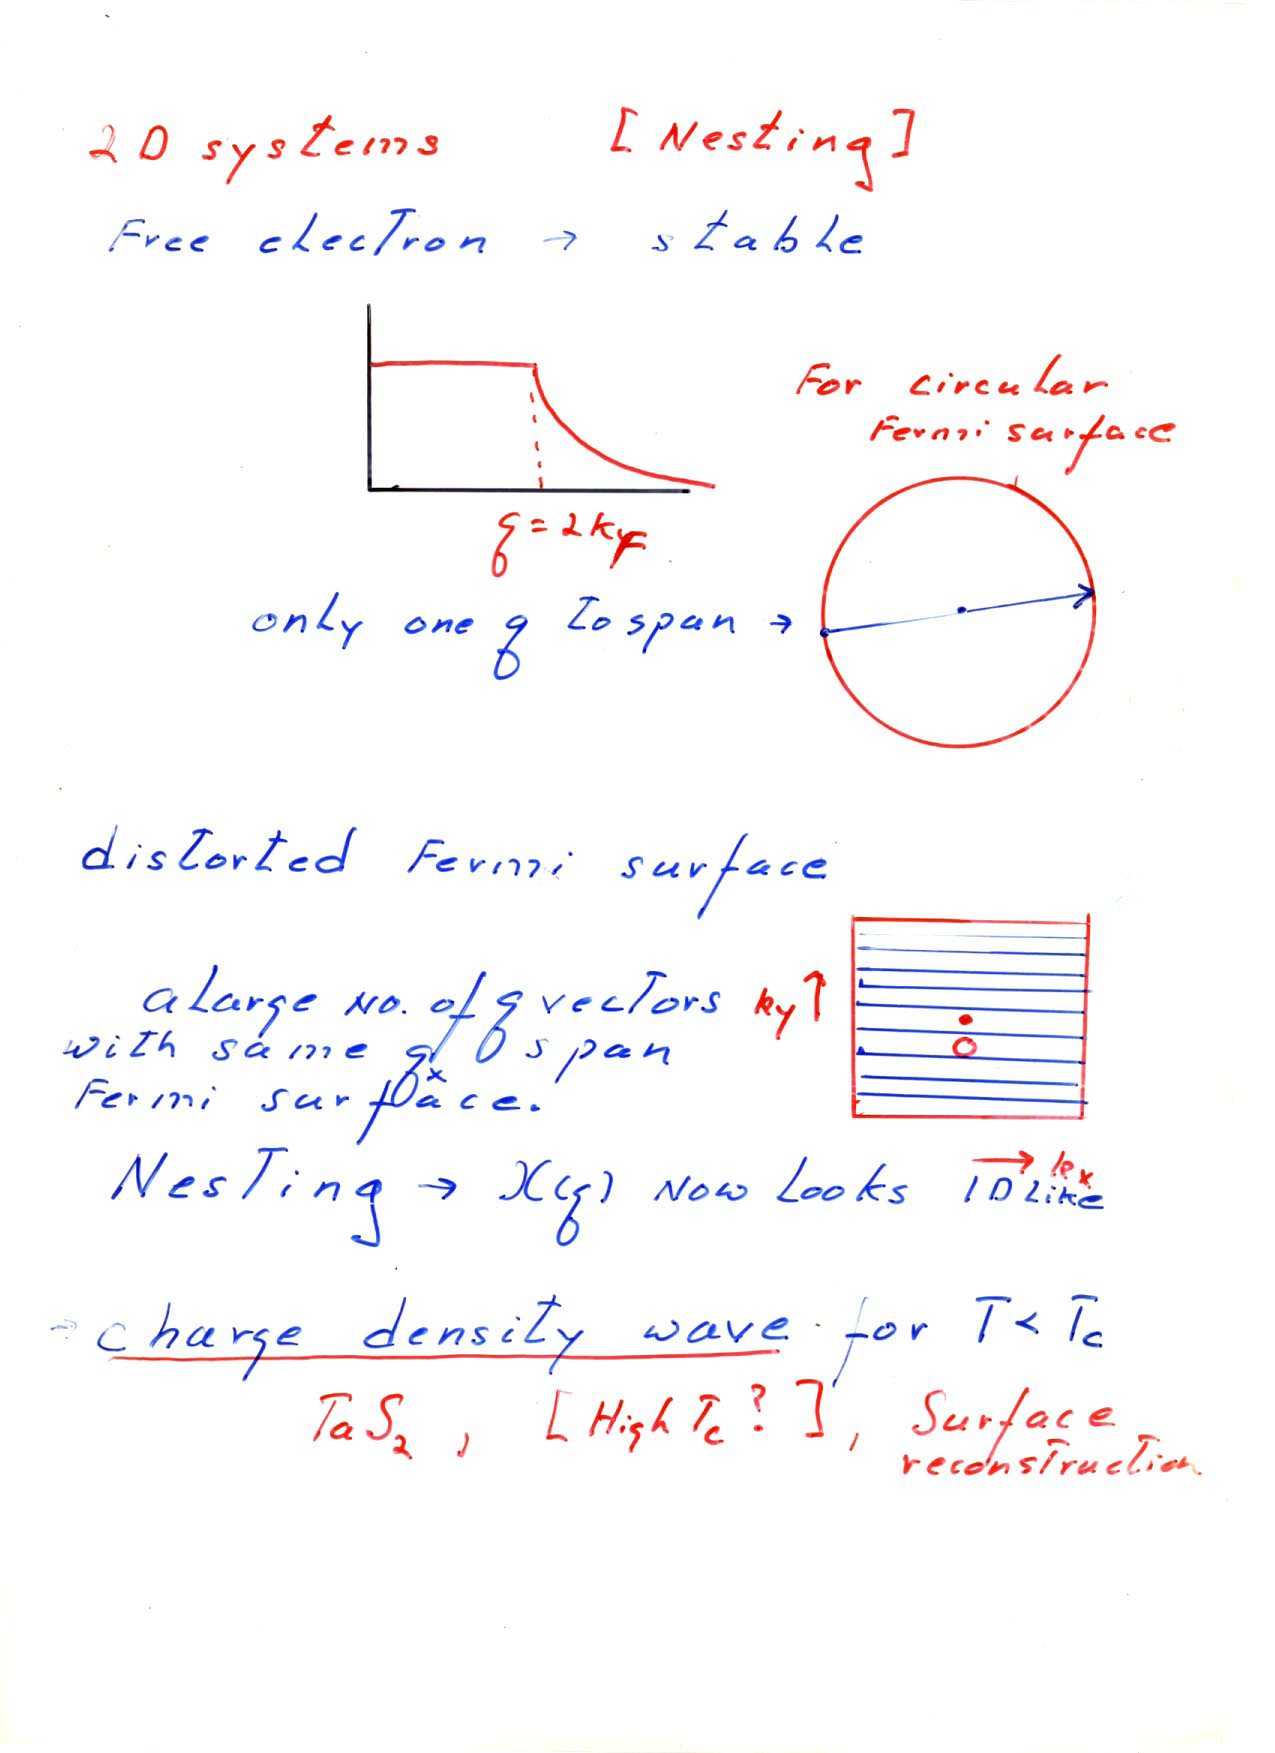 2D systems [Nesting]
Free electron → stable
For circular
Fermi surface
q = 2kF
only one q to span →
distorted Fermi surface
a large No. of q vectors
with same qx span
Fermi surface.
ky ↑
→ kx
Nesting → χ(q) Now Looks 1D Like
→ charge density wave for T < Tc
TaS2, [High Tc?], Surface
reconstruction